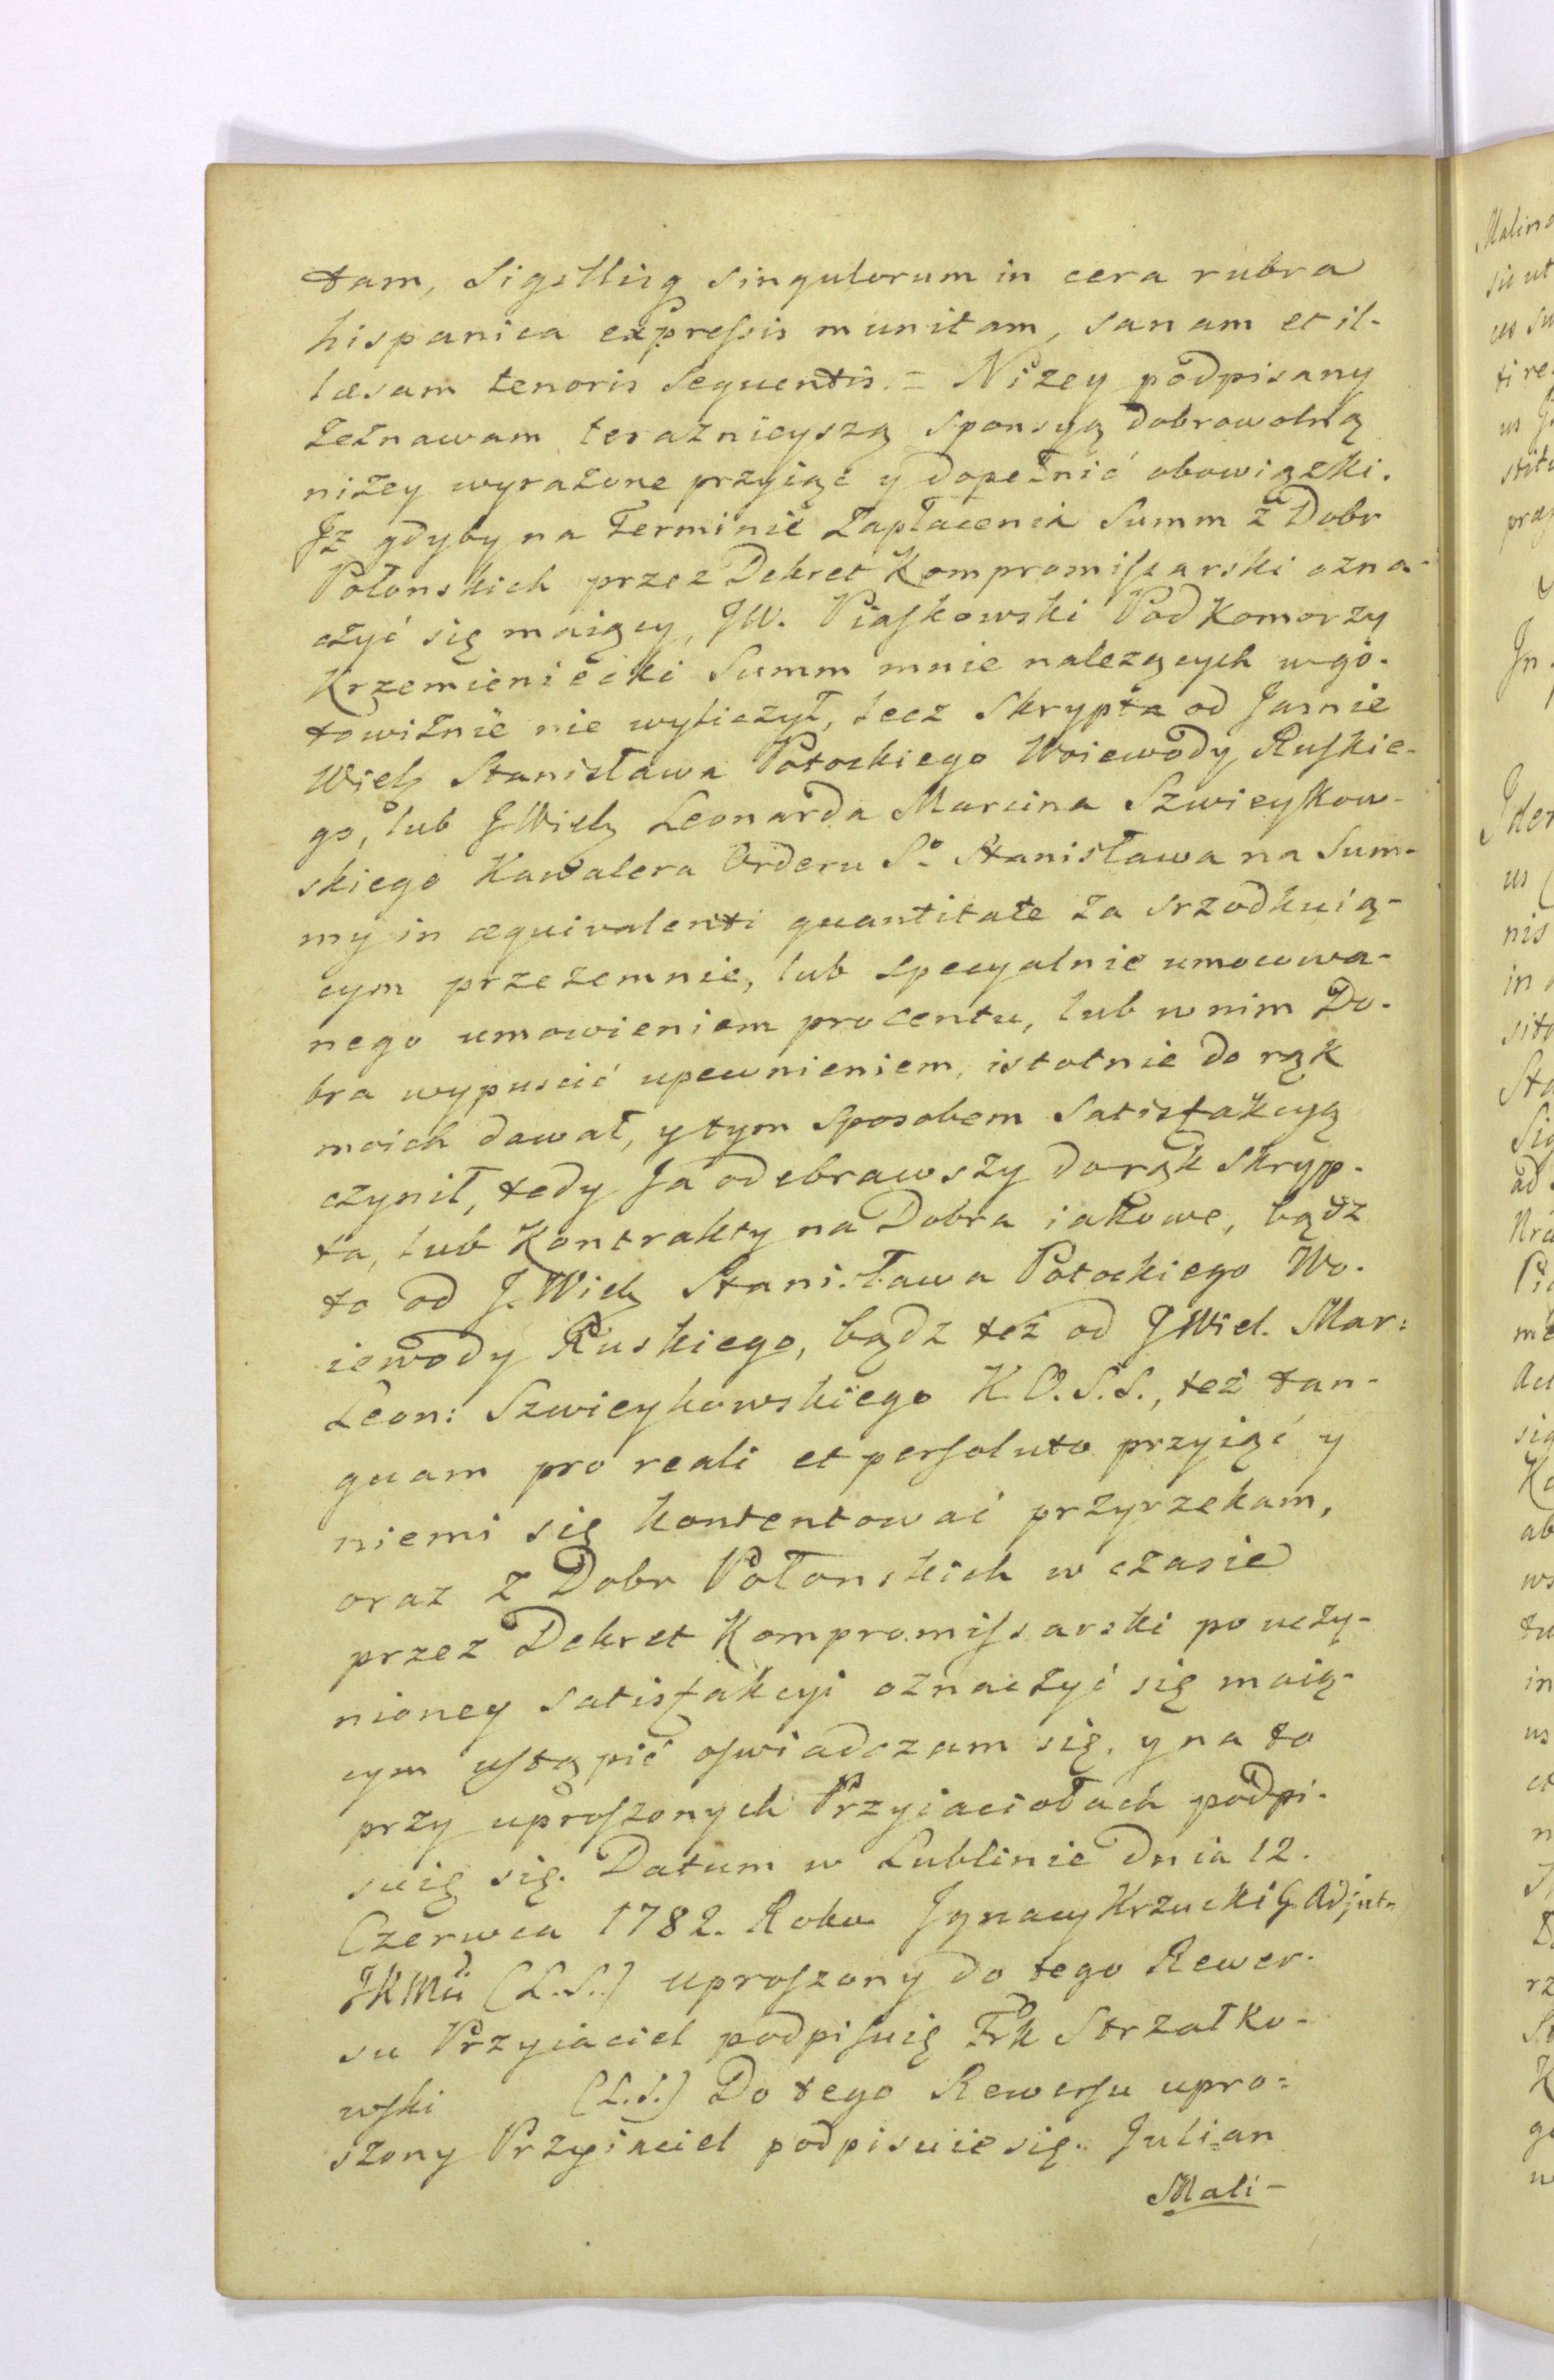 tam, Sigillisq singulorum in cera rubra
hispanica expressis munitam, sanam et il-
læsam tenoris sequentis. = Niżey podpisany
zeznawam teraznieyszą sponsyą dobrowolną
niżey wyrażone przyiąć y dopełnić obowiązki.
Iż gdyby na Terminie Zapłacenia Summ z Dobr
Połonskich przez Dekret Kompromissarski ozna-
czyć się maiący, JW. Piaskowski Podkomorzy
Krzemieniecki Summ mnie nalezących w go-
towiźnie nie wyliczył, lecz Skrypta od Jasnie
Wielz Stanisława Potockiego Woiewody Ruskie-
go, lub JWielz Leonarda Marcina Szwieykow-
skiego Kawalera Orderu So Stanisława na Sum-
my in æquivalenti quantitate za srzodkuią-
cym przezemnie, lub specyalnie umocowa-
nego umowieniem procentu, lub w nim Do-
bra wypuscić upewnieniem, istotnie do rąk
moich dawał, y tym sposobem Satisfakcyą
czynił, tedy Ja odebrawszy do rąk skryp-
ta, lub Kontrakty na Dobra iakowe, bądz
to od J.Wielz Stanisława Potockiego Wo-
iewody Ruskiego, bądz też od JWiel. Mar:
Leon: Szwieykowskiego K.O.S.S., też tan-
quam pro reali et persoluto przyiąć y
niemi się kontentować przyrzekam,
oraz z Dobr Połonskich w czasie
przez Dekret Kompromissarski po uczy-
nioney satisfakcyi oznaczyć się maią-
cym ustąpić oswiadczam się, y na to
przy uproszonych Przyiaciołach podpi-
suię się. Datum w Lublinie Dnia 12.
Czerwca 1782. Roku Ignacy Krzucki G. Adjut.
JKMci (L.S.) uproszony do tego Rewer-
su Przyiaciel podpisuię Frk Strzałko-
wski (L.S.) Do tego Rewersu upro=
szony Przyiaciel podpisuie się. Julian
Mali-